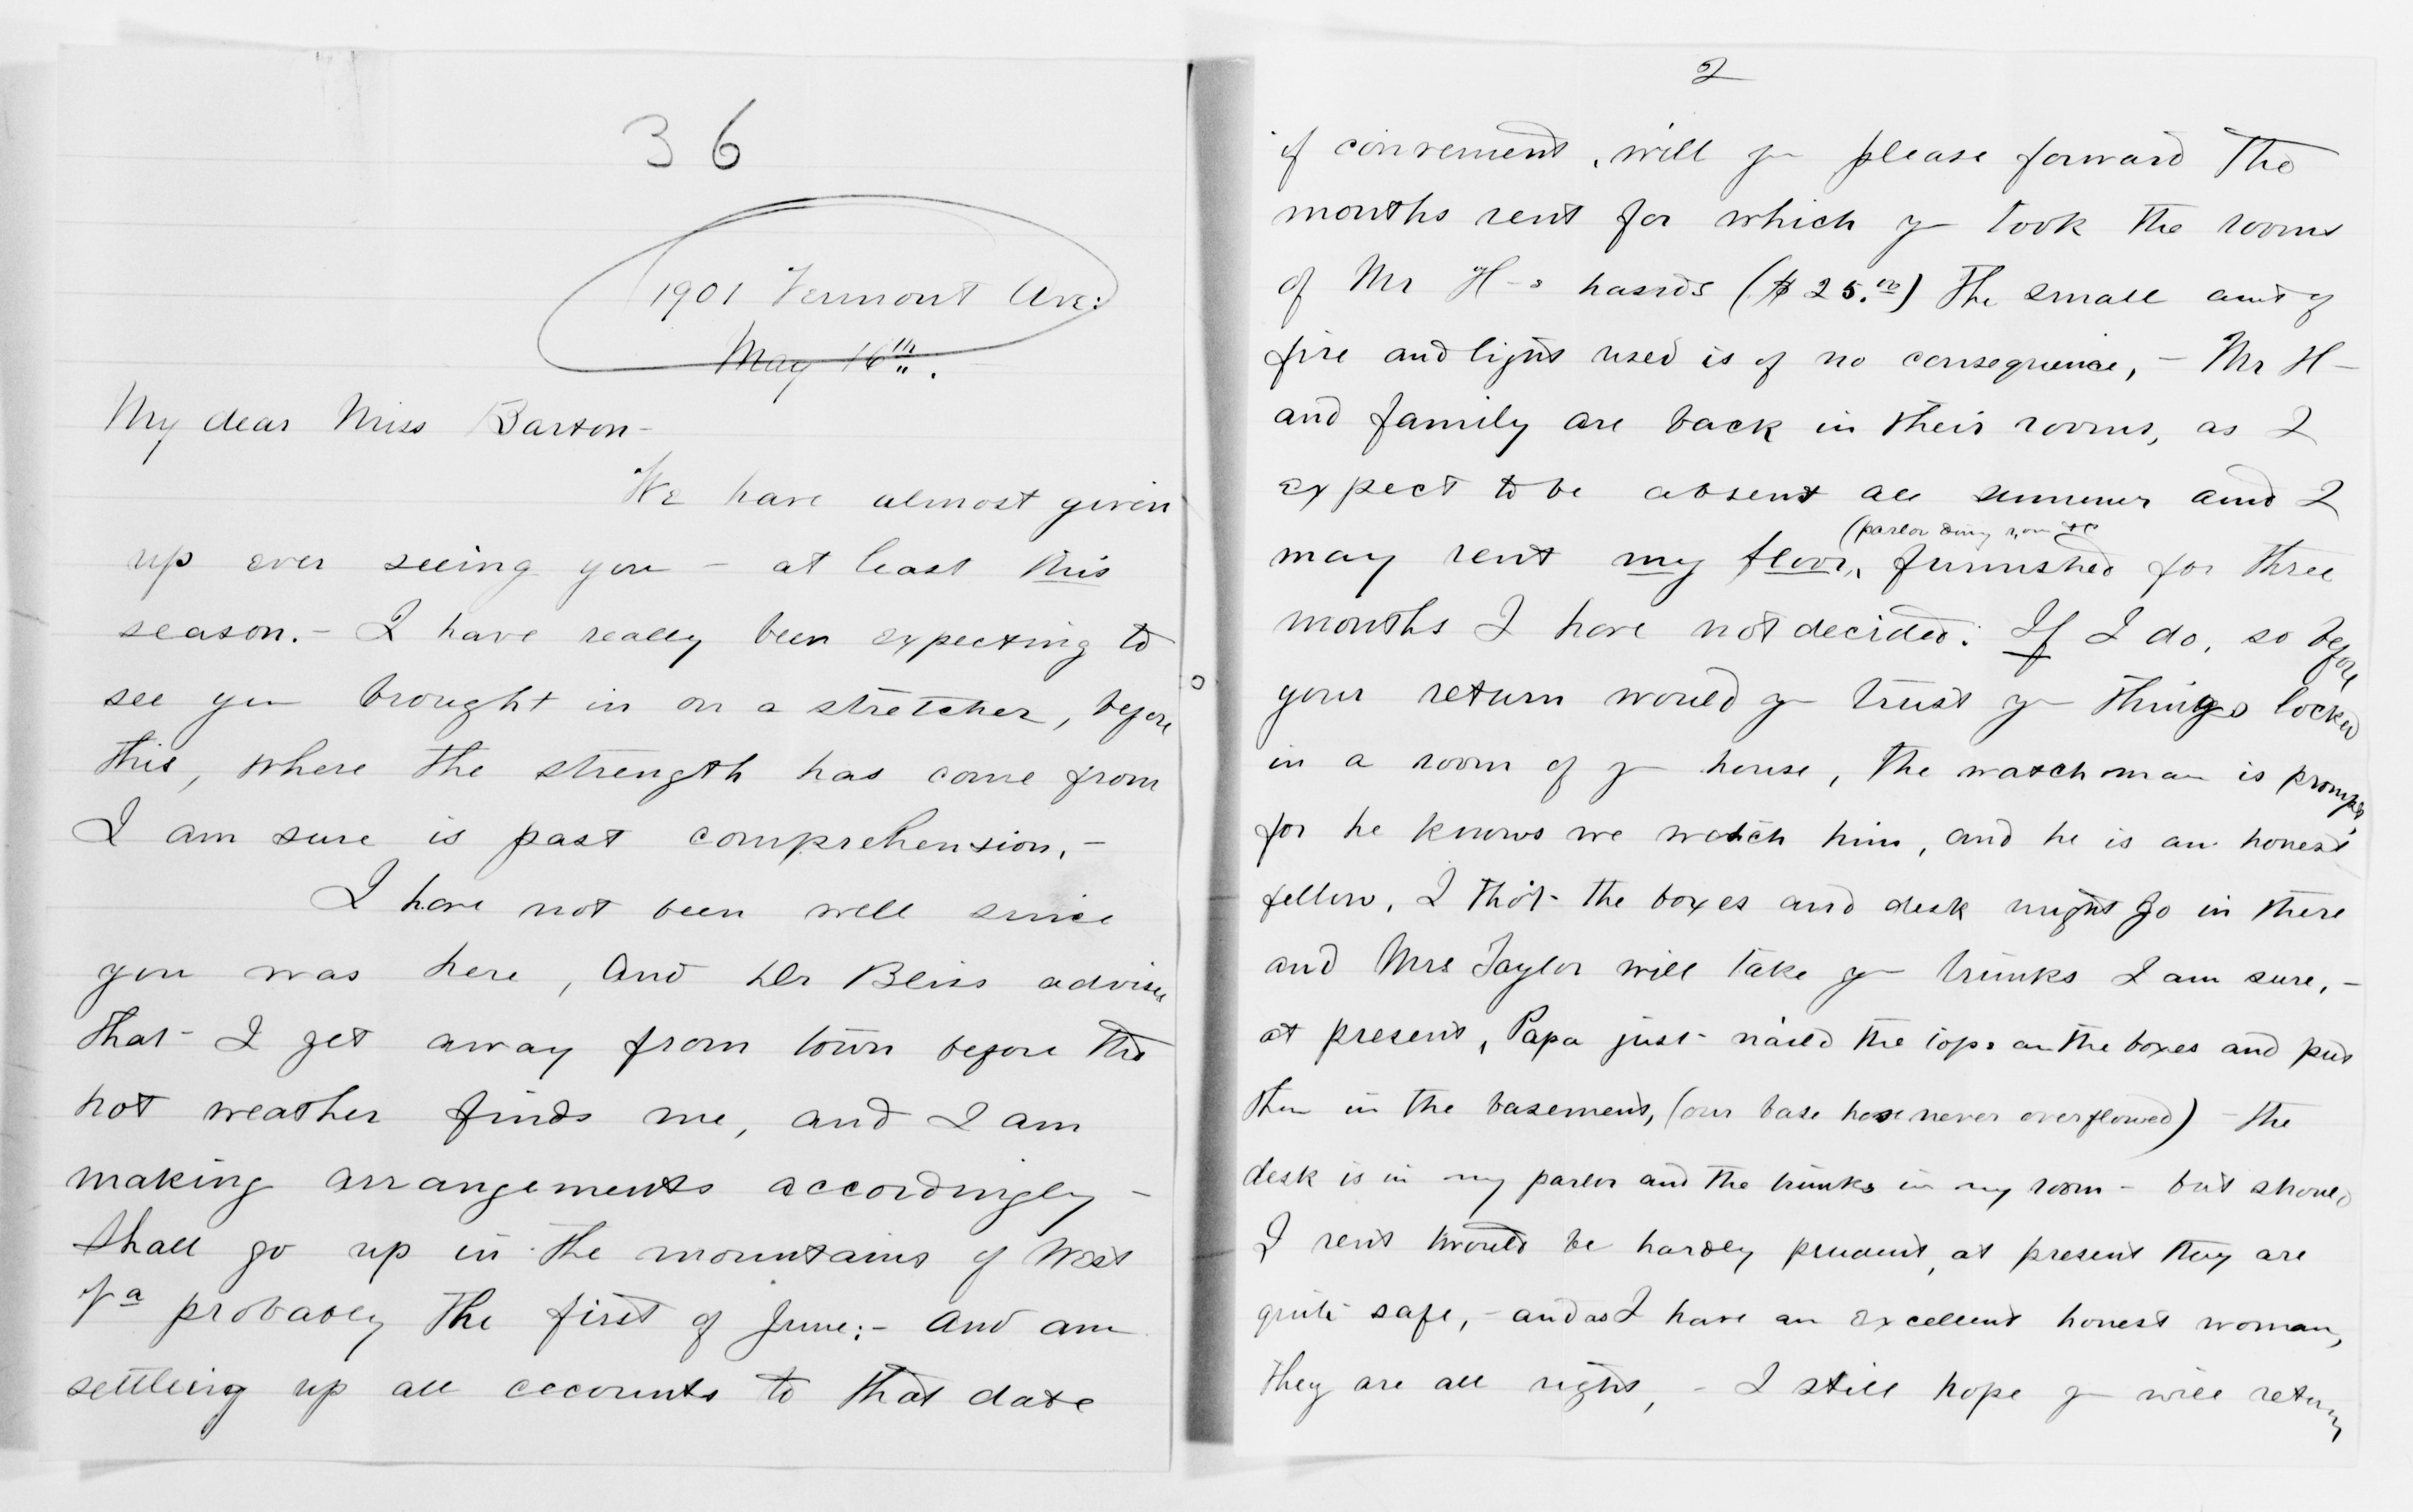 36
1901 Vermont Ave:
May 16th.
My dear Miss Barton-
We have almost given
up ever seeing you - at least this
season. - I have really been expecting to
see you brought in on a stretcher, before
this, where the strength has come from
I am sure is past comprehension. -
I have not been well since
you was here, and Dr Bliss advises
that I get away from town before the
hot weather finds me, and I am
making arrangements accordingly -
shall go up in the mountains of West
Va probably the first of June: - and am
settling up all accounts to that date
2
if convenient, will yu please forward the
months rent for which yu took the rooms
of Mr H-s hands ($25.00) The small amt of
fire and light used is of no consequence, - Mr H-
and family are back in their rooms, as I
expect to be absent all summer and I
(parlor ding room &c
may rent my floor, furnished for three
months I have not decided: If I do, so before
your return would yu trust yr things locked
in a room of yr house, the watchman is prompt,
for he knows we watch him, and he is an honest
fellow, I tho't the boxes and desk might go in there
and Mrs Taylor will take yr trunks I am sure, -
at present, Papa just nailed the tops on the boxes and put
them in the basement, (our base has never overflowed) - the
desk is in my parlor and the trunks in my room - but should
I rent would be hardly prudent, at present they are
quite safe, - and as I have an excellent honest woman,
they are all right, - I still hope yu will return